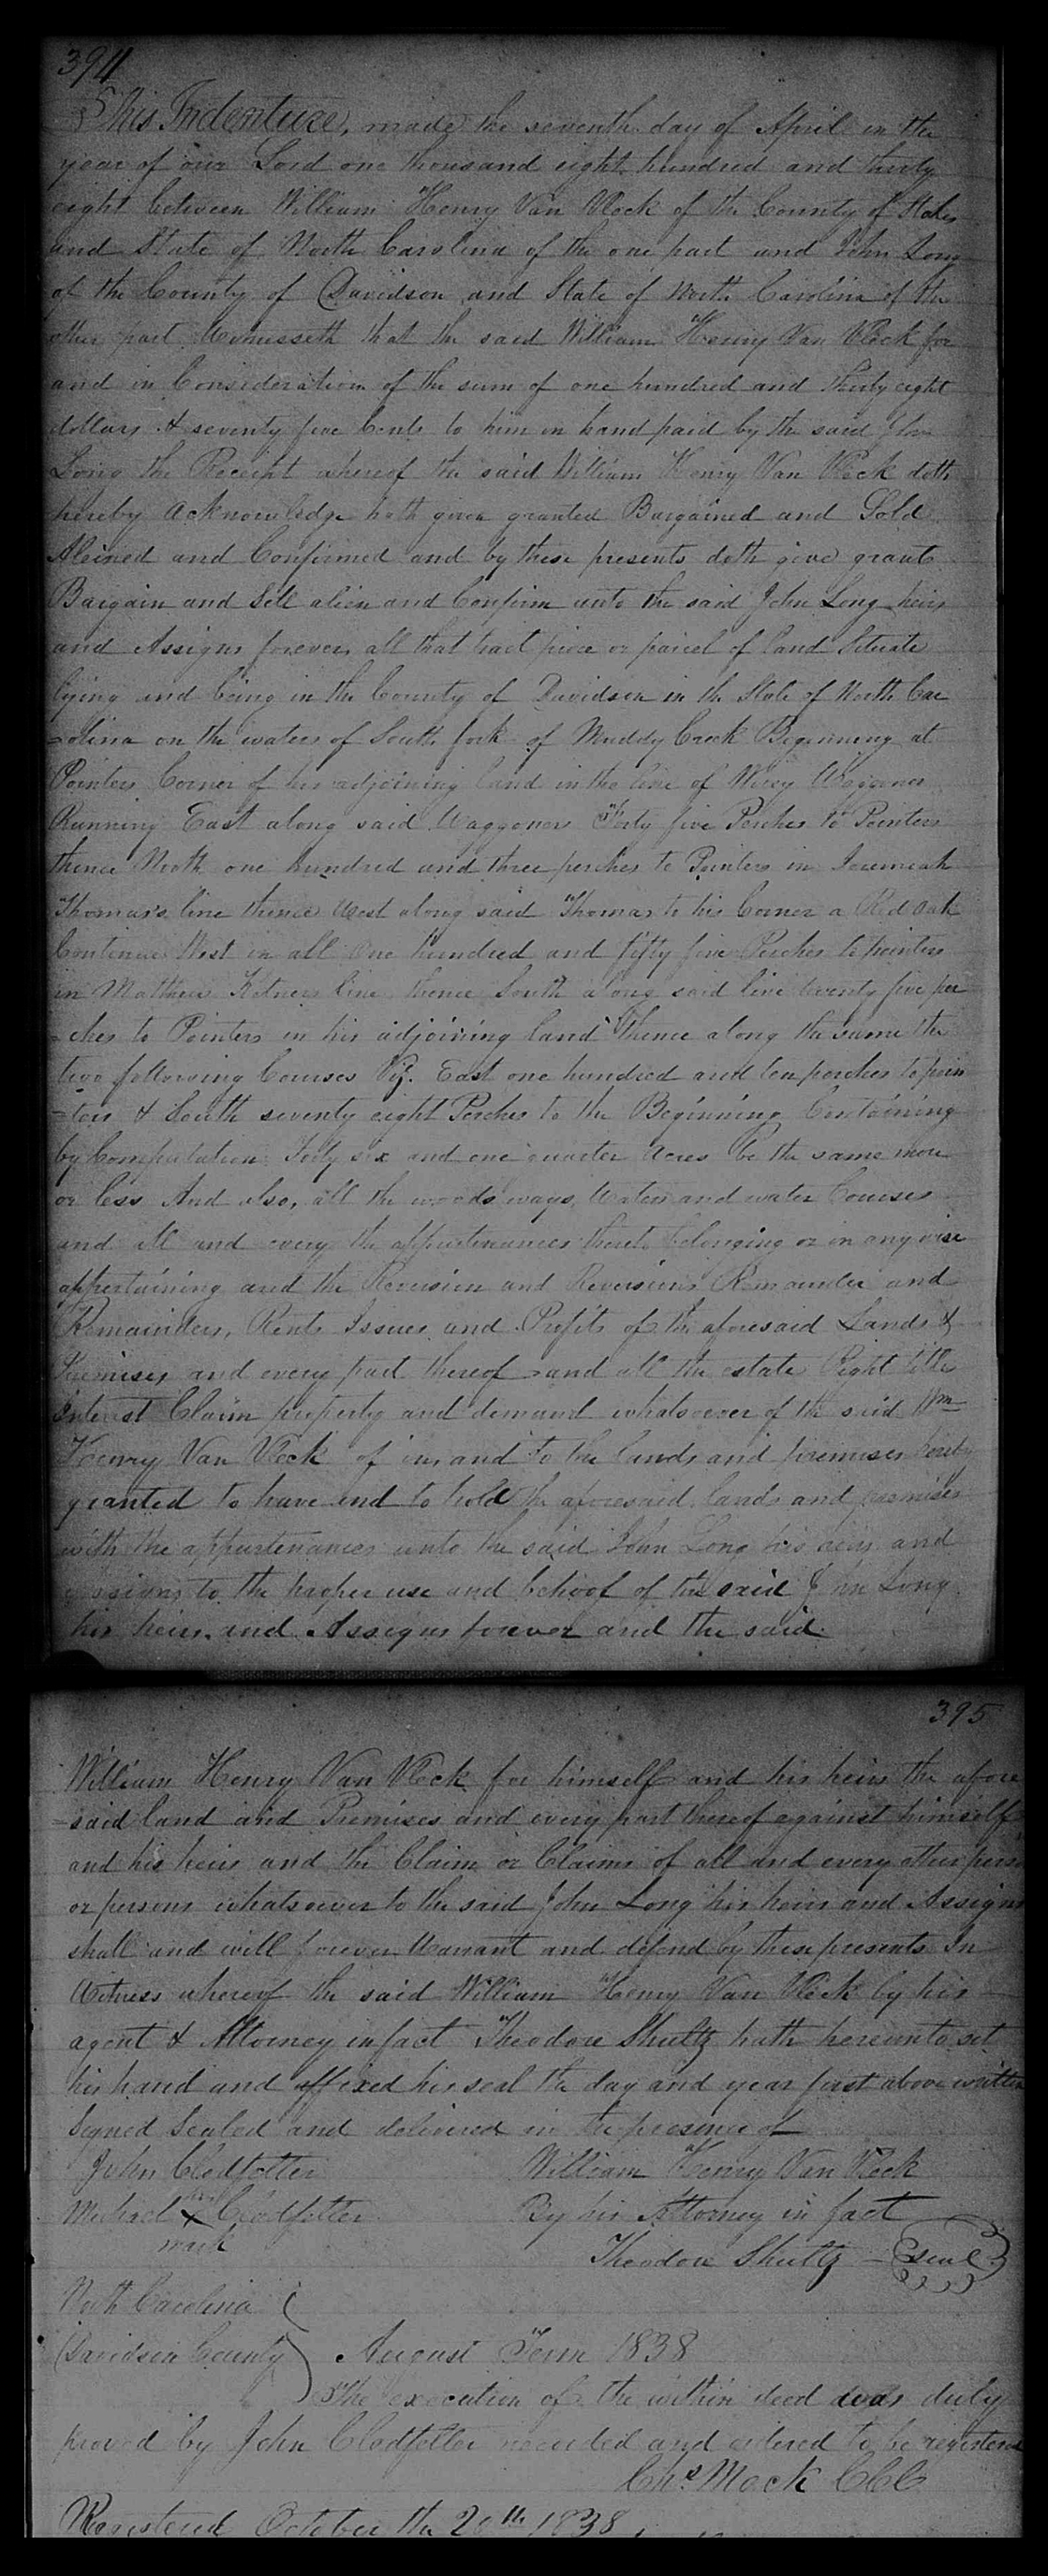 394
This Indenture, made the seventh day of April in the
year of our Lord one thousand eight hundred and thirty
eight between William Henry Van Vleck of the County of Stokes
and State of North Carolina of the one part and John Long
of the County of Davidson and State of North Carolina of the
other part Witnesseth that the said William Henry Van Vleck for
and in Consideration of the sum of one hundred and thirty eight
dollars & seventy five Cents to him in hand paid by the said John
Long the Receipt whereof the said William Henry Van Vleck doth
hereby acknowledge hath given granted Bargained and Sold
Aleined and Confirmed and by these presents doth give grant
Bargain and Sell alien and Confirm unto the said John Long heirs
and Assigns forever, all that tract piece or parcel of land Situate
lying and being in the County of Davidson in the State of North Car
=olina on the waters of South fork of Muddy Creek Beginning at
Pointers Corner of his adjoining land in the line of Waggoner
Running East along said Waggoners Forty five Perches to Pointers
thence North one hundred and three perches to Pointers in Jeremiah
Thomas's line thence West along said Thomas to his Corner a Red Oak
Continue West in all One hundred and fifty five Perches to pointers
in Matthew Kitners line thence South along said line twenty five per
=ches to Pointers in his adjoining land Thence along the same the
two following Courses Viz. East one hundred and ten perches to poin
=ters & South seventy eight Perches to the Beginning Containing
by Computation Forty six and one quarter Acres be the same more
or less And also, all the woods ways, Waters and water Courses
and all and every the appurtenances thereto belonging or in any wise
appertaining and the Reversion and Reversions Remainder and
Remainders, Rents Issues and Profits of the aforesaid Lands &
Premises and every part thereof and all the estate Right title
Interest Claim property and demand whatsoever of the said Wm
Henry Van Vleck of in, and to the lands and premises hereby
granted to have and to hold the aforesaid lands and premises
with the appurtenances unto the said John Long his heirs and
assigns to the proper use and behoof of the said John Long
his heirs and Assigns forever and the said
395
William Henry Van Vleck for himself and his heirs the afore
=said land and Premises and every part thereof against himself
and his heirs and the Claim or Claims of all and every other person
or persons whatsoever to the said John Long his heirs and Assigns
shall and will forever Warrant and defend by these presents In
Witness whereof the said William Henry Van Vleck by his
agent & Attorney in fact Theodore Shultz hath hereunto set
his hand and affixed his seal the day and year first above written
Signed Sealed and delivered in the presence of
John Clodfelter William Henry Van Vleck
his
Michael X Clodfelter By his Attorney in fact
mark
Theodore Shultz seal
North Carolina
Davidson County August Term 1838
The execution of the within deed was duly
proved by John Clodfelter recorded and ordered to be registered
Chs. Mock CCC
Registered October the 20th 1838